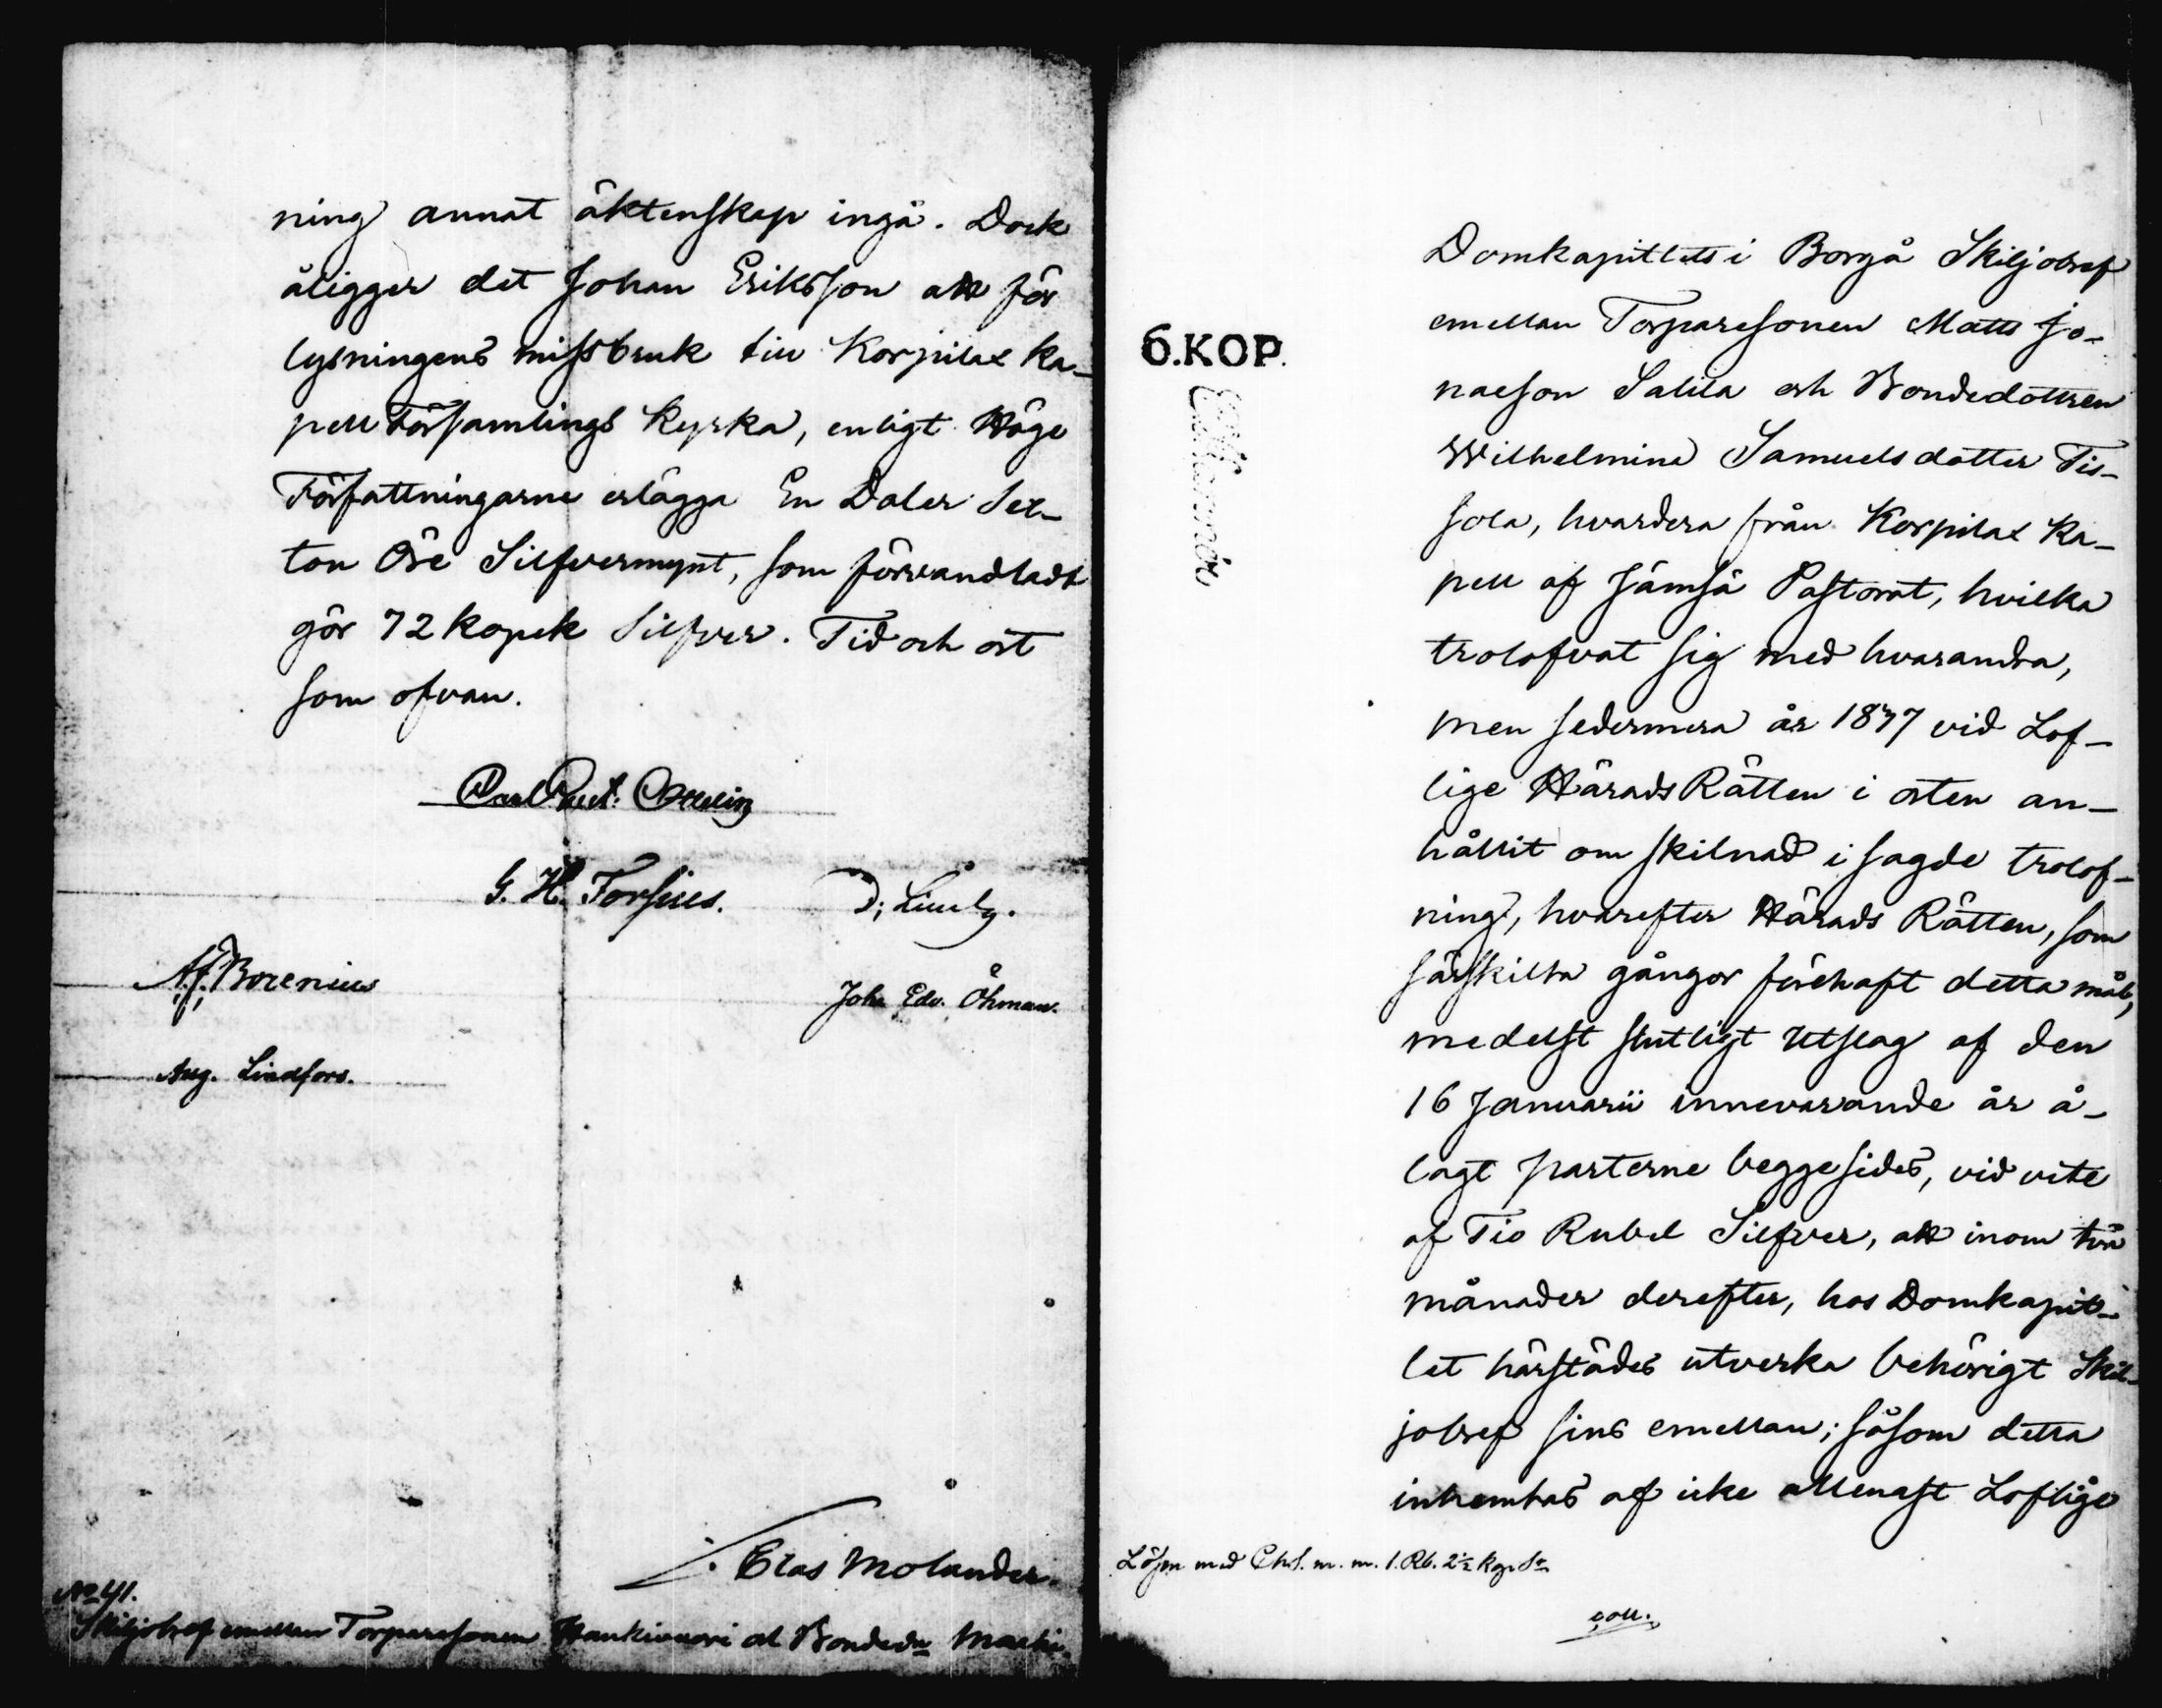 ning annat äktenskap ingå. Dock
åligger det Johan Eriksson att för
lysningens missbruk till Korpilax ka-
pell Församlings kyrka, enligt Höge
Författningarne erlägga En Daler Sex-
ton Öre Silfvermynt, som förvandladt
gör 72 kopek Silfver. Tid och ort
som ofvan.
Carl
G. H. Forsius.
A. J. Borenius
Joh. Edv. Öhman.
Aug. Lindfors.
Clas Molander.
No 41.
Skiljobref emellan Torparesonen Haukivuori et Bondedn
6.KOP.
Domkapitlets i Borgå Skiljobref
emellan Torparesonen Matts Jo-
naeson Salila och Bondedottren
Wilhelmina Samuelsdotter Tis-
sola, hvardera från Korpilax Ka-
pell af Jämsä Pastorat, hvilka
trolofvat sig med hvarandra,
men sedermera år 1847 vid Lof-
lige HäradsRätten i orten an-
hållit om skilnad i sagde trolof-
ning, hvarefter Härads Rätten, som
särskilta gångor förehaft detta mål,
medelst slutligt Utslag af den
16 Januarii innevarande år å-
lagt parterne beggesides, vid vite
af Tio Rubel Silfver, att inom två
månader derefter, hos Domkapit-
let härstädes utverka behörigt Skil-
jobref sins emellan; såsom detta
inhemtas af icke allenast Loflige
Lösen med Chs. m. m. 1. Rb. 2½ kop. Sr
coll.